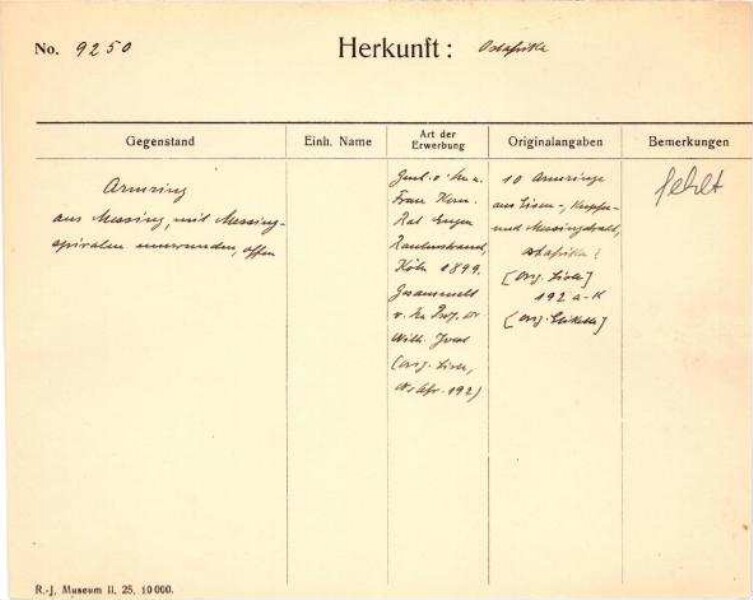 No. 9250
Herkunft: Ostafrika
Gegenstand
Einh. Name
Art der Erwerbung
Originalangaben
Bemerkungen
Armring
aus Messing, mit Messing-
spiralen umwunden, offen
Frau Kom.
Rat Eugen
Rautenstrauch,
Köln 1899.
Gesammelt
v. Prof. Dr
Wilh. Joest
(orig. Liste,
192)
10 Armringe
aus Eisen-, Kupfer-
und Messingdraht,
Ostafrika!
[orig. Liste]
192 a-K
[orig. Etikette]
fehlt
R.-J. Museum II. 25. 10000.